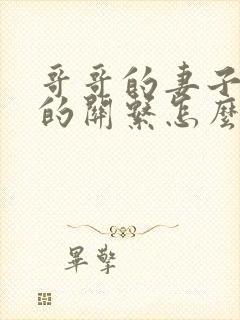 哥哥的妻子
的關繫怎麼
畢擎